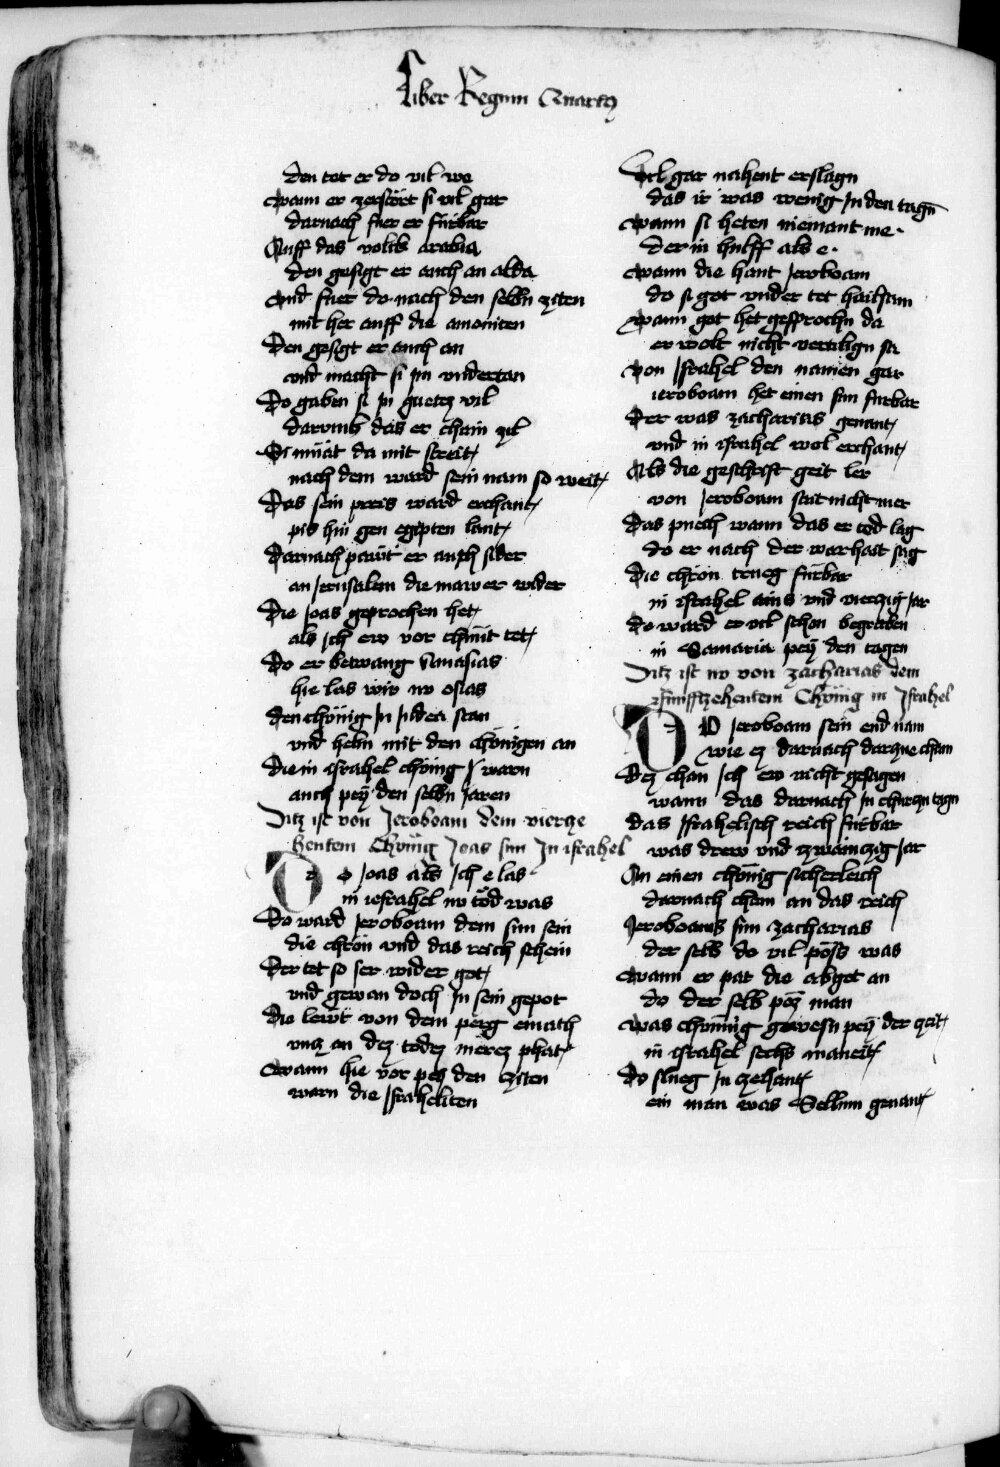 Liber Regum Quartus
den tet er do vil we
wann er zerstört si vil gar
darnach fuer er fürbar
Auff das volkh arabia
den gesigt er auch an alda
vnd fuer do nach den selbn ziten
mit her auff die amoniten
Den gesigt er auch an
vnd macht si im vndertan
Do gaben si in guetez vil
darvmb das er chain zil
Si muät da mit streit
nach dem ward sein nam so weit
Das sein preis ward erchant
pis hin gen egipten lant
Darnach pawt er auch sider
an Jerusalem die mawer wider
Die Joas geprochen het
als Jch ew vor chunt tet
Do er betwang Amasias
hie las wir nv osias
den chönig Jn Judea stan
vnd hebn mit den chönigen an
Die in israhel chönig warn
auch pey den selbn Jaren
Ditz ist von Jeroboam dem vierze
hentem Chönig Joas sun Jn israhel
Do Joas als Jch e las
in israhel nv töd was
Do ward Jeroboam dem sun sein
die chron vnd das reich schein
Der tet so ser wider got
vnd gewan doch Jn sein gepot
Die lewt von dem perg emath
vntz an dez todez merez phat
Wann hie vor pey den ziten
warn die Jsraheliten
Vil gar nahent erslagn
das ir was wenig Jn den tagn
wann si heten niemant me
der in hulff als e
wann die hant Jeroboam
do si got vnder tet hailsam
wann got het gesprochn da
er wolt nicht vertilign sa
von Jsrahel den namen gar
ieroboam het einen sun fürbar
Der was zacharias genant
vnd in israhel wol erchant
Als die geschrift geit ler
von Jeroboam stat nicht mer
Das puech wann das er tod lag
do er nach der warhait sag
Die chron trueg fürbar
in israhel ains vnd vierzig Jar
do ward er vil schon begraben
in Samaria pey den tagen
Ditz ist nv von zacharias dem
fünfftzehentem Chönig in Jsrahel
Do Jeroboam sein end nam
wie ez darnach darzue cham
Dez chan Jch ew nicht gesagen
wann das darnach in churtzn tagn
das Jsrahelisch reich fürbar
was drew vnd zwainczig Jar
An einen chönig sicherleich
darnach chom an das reich
Jeroboams sun zacharias
der selb do vil pöss was
wann er pat die abget an
do der selb poz man
was chönig gewesn pey der zeit
in israhel sechs maneit
do slueg in zehant
ein man was Sellum genant